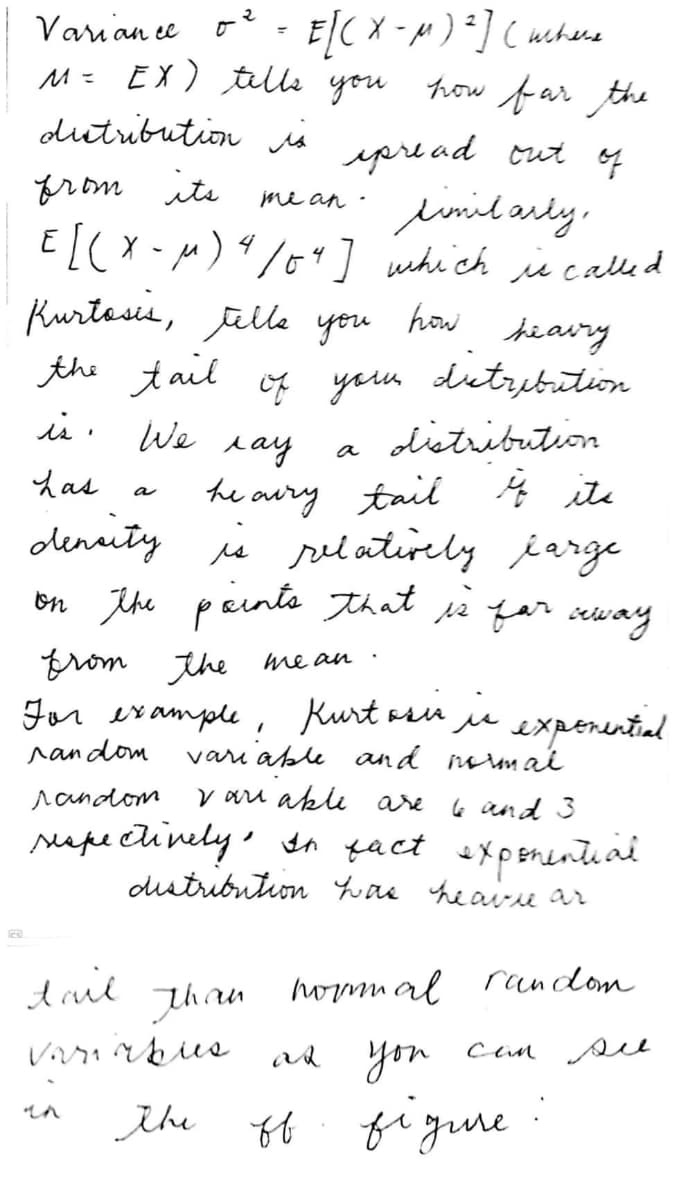 Variance σ² = E[(X-μ)²] (where
M = EX) tells you how far the
distribution is spread out of
from its mean. Similarly,
E[(X-μ)⁴/σ⁴] which is called
Kurtosis, tells you how heavy
the tail of your distribution
is. We say a distribution
has a heavy tail if its
density is relatively large
on the points that is far away
from the mean.
For example, Kurtosis is exponential
random variable and normal
random variable are 6 and 3
respectively. In fact exponential
distribution has heavie ar
tail than normal random
variables as you can see
in the ff. figure: